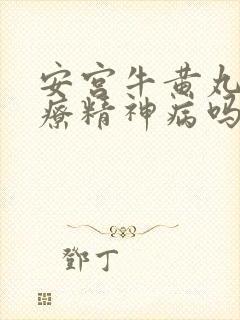 安宫牛黄丸
疗精神病吗
鄧丁